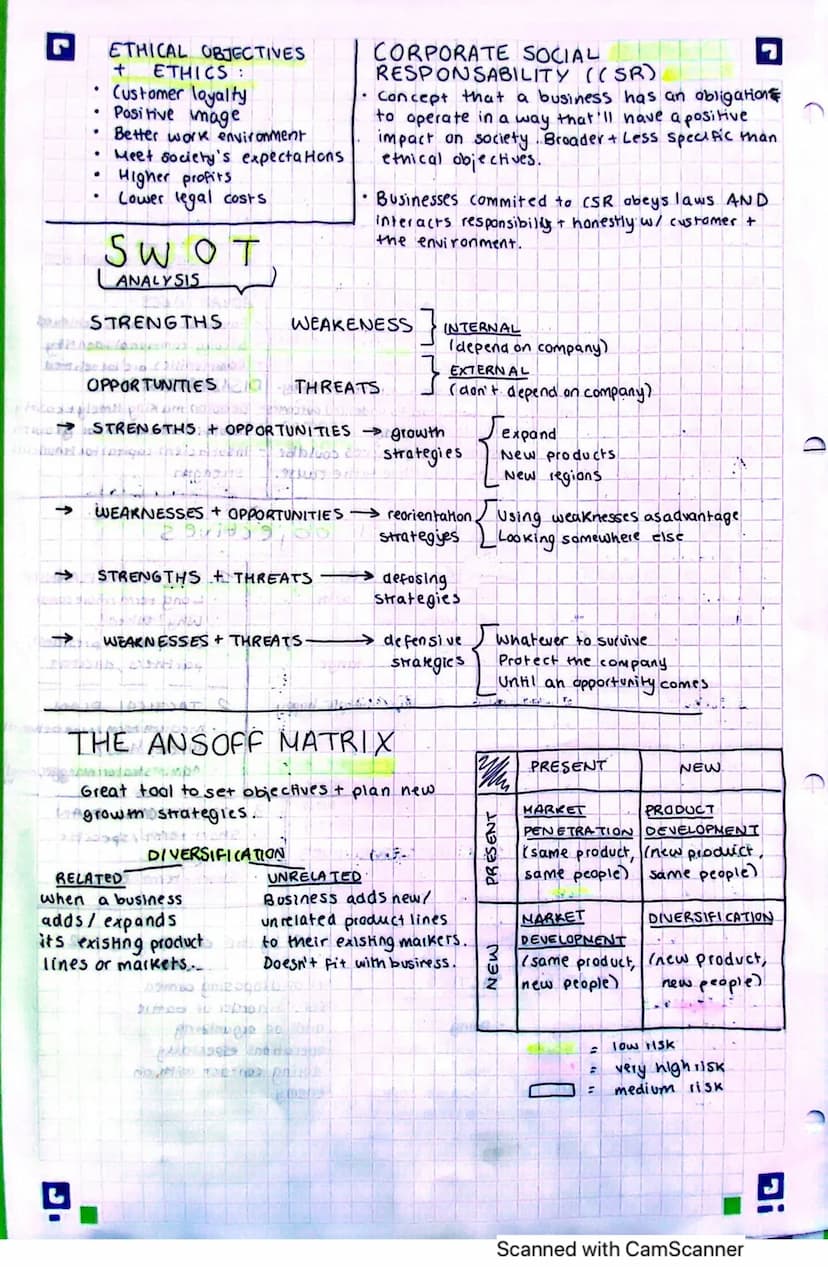 ETHICAL OBJECTIVES
+ ETHICS :
• Customer loyalty
• Positive image
• Better work environment
• Meet society's expectations
• Higher profits
• Lower legal costs
CORPORATE SOCIAL
RESPONSABILITY ((SR)
• Concept that a business has an obligation
to operate in a way that'll have a positive
impact on society. Broader + Less specific than
ethical objectives.
• Businesses commited to CSR obeys laws AND
interacts responsibilly + honestly w/ customer +
the environment.
SWOT
ANALYSIS
STRENGTHS WEAKENESS } INTERNAL
(depend on company)
OPPORTUNITIES THREATS } EXTERNAL
(don't depend on company)
→ STRENGTHS + OPPORTUNITIES → growth
strategies
expand
New products
New regions
→ WEAKNESSES + OPPORTUNITIES → reorientation
strategies
Using weaknesses as advantage
Looking somewhere else
→ STRENGTHS + THREATS → defosing
strategies
→ WEAKNESSES + THREATS → defensive
strategies
Whatever to survive
Protect the company
Until an opportunity comes
THE ANSOFF MATRIX
Great tool to set objectives + plan new
growth strategies.
DIVERSIFICATION
RELATED
when a business
adds / expands
its existing product
lines or markets.
UNRELATED
Business adds new/
unrelated product lines
to their existing markers.
Doesn't fit with business.
PRESENT NEW
PRESENT
MARKET
PENETRATION
(same product,
same people)
PRODUCT
DEVELOPMENT
(new product,
same people)
NEW
MARKET
DEVELOPMENT
(same product,
new people)
DIVERSIFICATION
(new product,
new people)
= low risk
= very high risk
= medium risk
Scanned with CamScanner